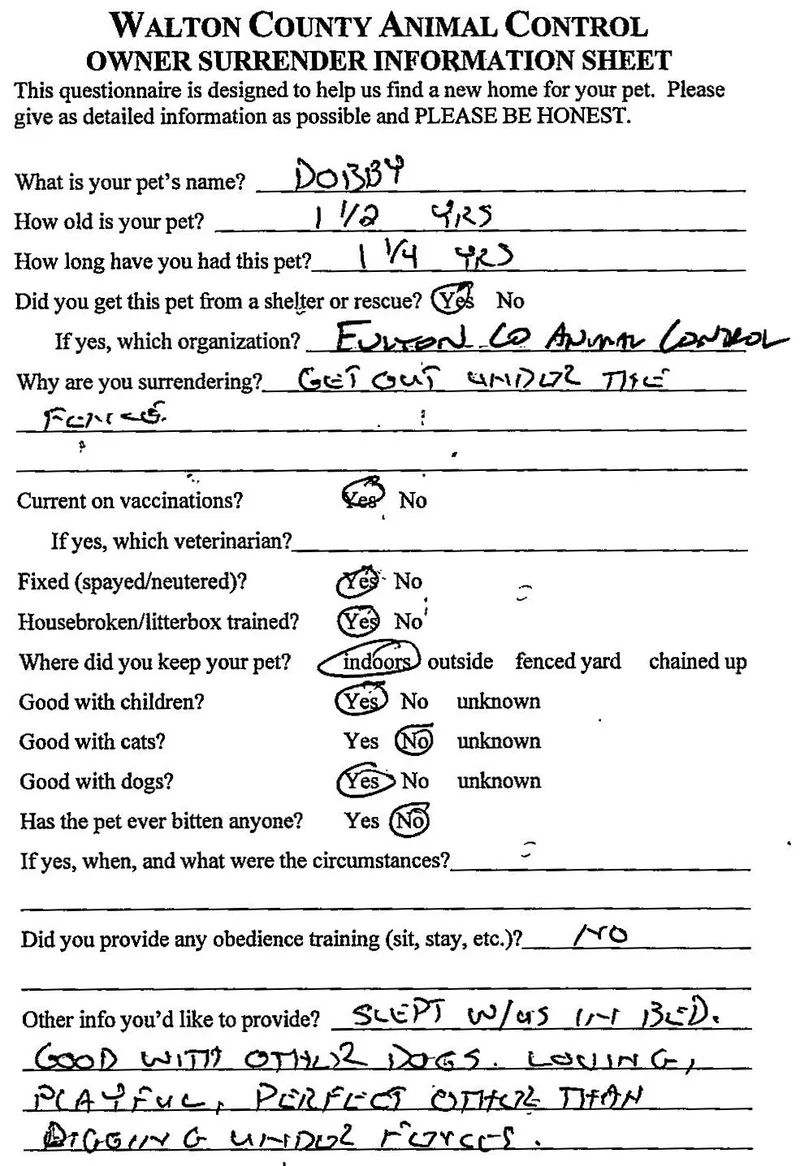 WALTON COUNTY ANIMAL CONTROL
OWNER SURRENDER INFORMATION SHEET
This questionnaire is designed to help us find a new home for your pet. Please
give as detailed information as possible and PLEASE BE HONEST.
What is your pet's name? DOBBY
How old is your pet? 1 1/2 YRS
How long have you had this pet? 1 1/4 YRS
Did you get this pet from a shelter or rescue? Yes No
If yes, which organization? FULTON CO ANIMAL CONTROL
Why are you surrendering? GET OUT UNDER THE
FENCE.
Current on vaccinations? Yes No
If yes, which veterinarian?
Fixed (spayed/neutered)? Yes No
Housebroken/litterbox trained? Yes No
Where did you keep your pet? indoors outside fenced yard chained up
Good with children? Yes No unknown
Good with cats? Yes No unknown
Good with dogs? Yes No unknown
Has the pet ever bitten anyone? Yes No
If yes, when, and what were the circumstances?
Did you provide any obedience training (sit, stay, etc.)? NO
Other info you'd like to provide? SLEPT W/US IN BED.
GOOD WITH OTHER DOGS. LOVING,
PLAYFUL, PERFECT OTHER THAN
DIGGING UNDER FENCES.